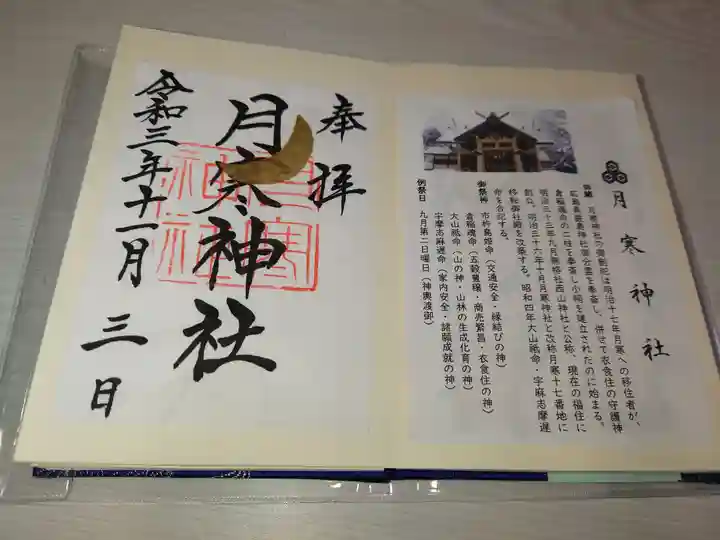 月寒神社
御由緒 月寒神社の御創祀は明治十七年月寒への移住者が、
広島県厳島神社御分霊を奉斎し、併せて衣食住の守護神
倉稲魂命の二柱を奉斎し小祠を建立されたのに始まる。
明治三十三年九月無格社西山神社と公称、現在の福住に
創祀。明治三十六年十月月寒神社と改称月寒十七番地に
移転御社殿を改築する。昭和四年大山祇命・宇麻志摩遅
命を合祀する。
御祭神 市杵島姫命(交通安全・縁結びの神)
倉稲魂命(五穀豊穣・商売繁昌・衣食住の神)
大山祇命(山の神・山林の生成化育の神)
宇摩志麻遅命(家内安全・諸願成就の神)
例祭日 九月第二日曜日(神輿渡御)
奉拝
月寒神社
令和三年十一月三日